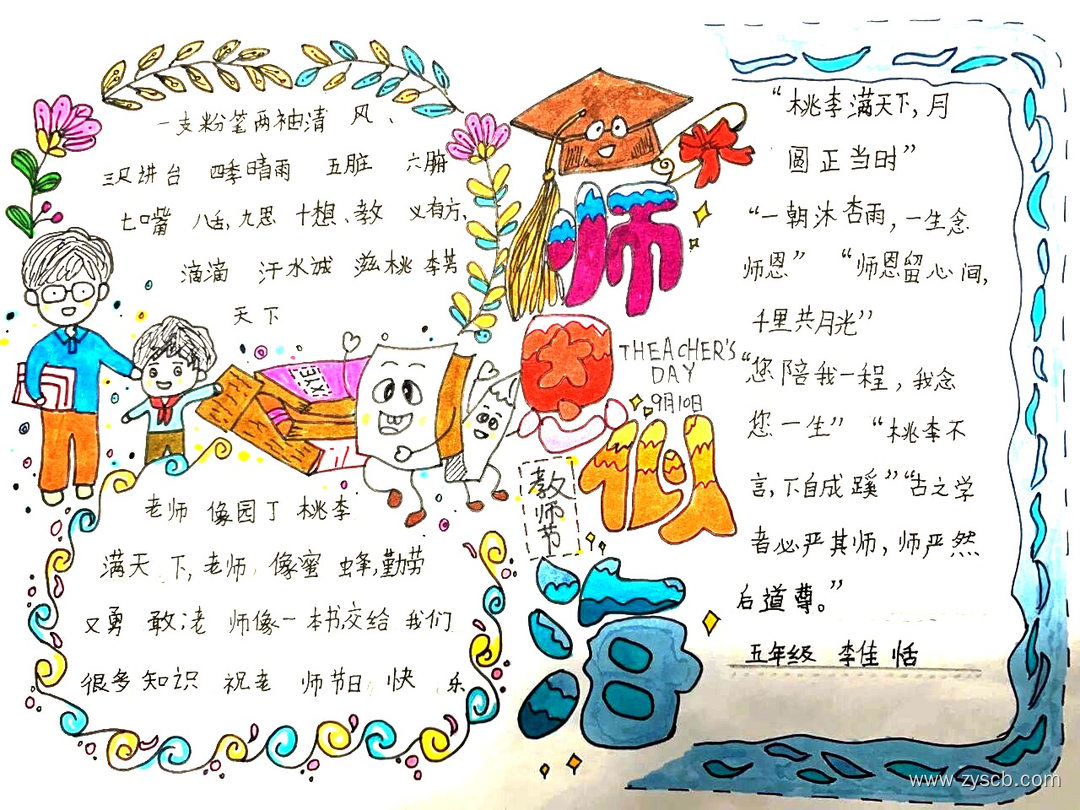 一支粉笔两袖清 风、
三尺讲台 四季晴雨 五脏 六腑
七口嘴 八舌,九思 十想、教 义有方,
滴滴 汗水诚 滋桃 李芳
天下
老师 像园丁 桃李
满天 下,老师, 像蜜 蜂,勤劳
又勇 敢;老 师像一本书交给 我们
很多知识 祝老 师节日 快 乐
师恩似海
THEACHER'S
DAY
9月10日
教师节
“桃李满天下,月
圆正当时”
“一朝沐杏雨,一生念
师恩” “师恩留心间,
千里共月光”
“您陪我一程,我念
您一生” “桃李不
言,下自成蹊”“古之学
者必严其师,师严然
后道尊。”
五年级 李佳恬
www.zyscb.com